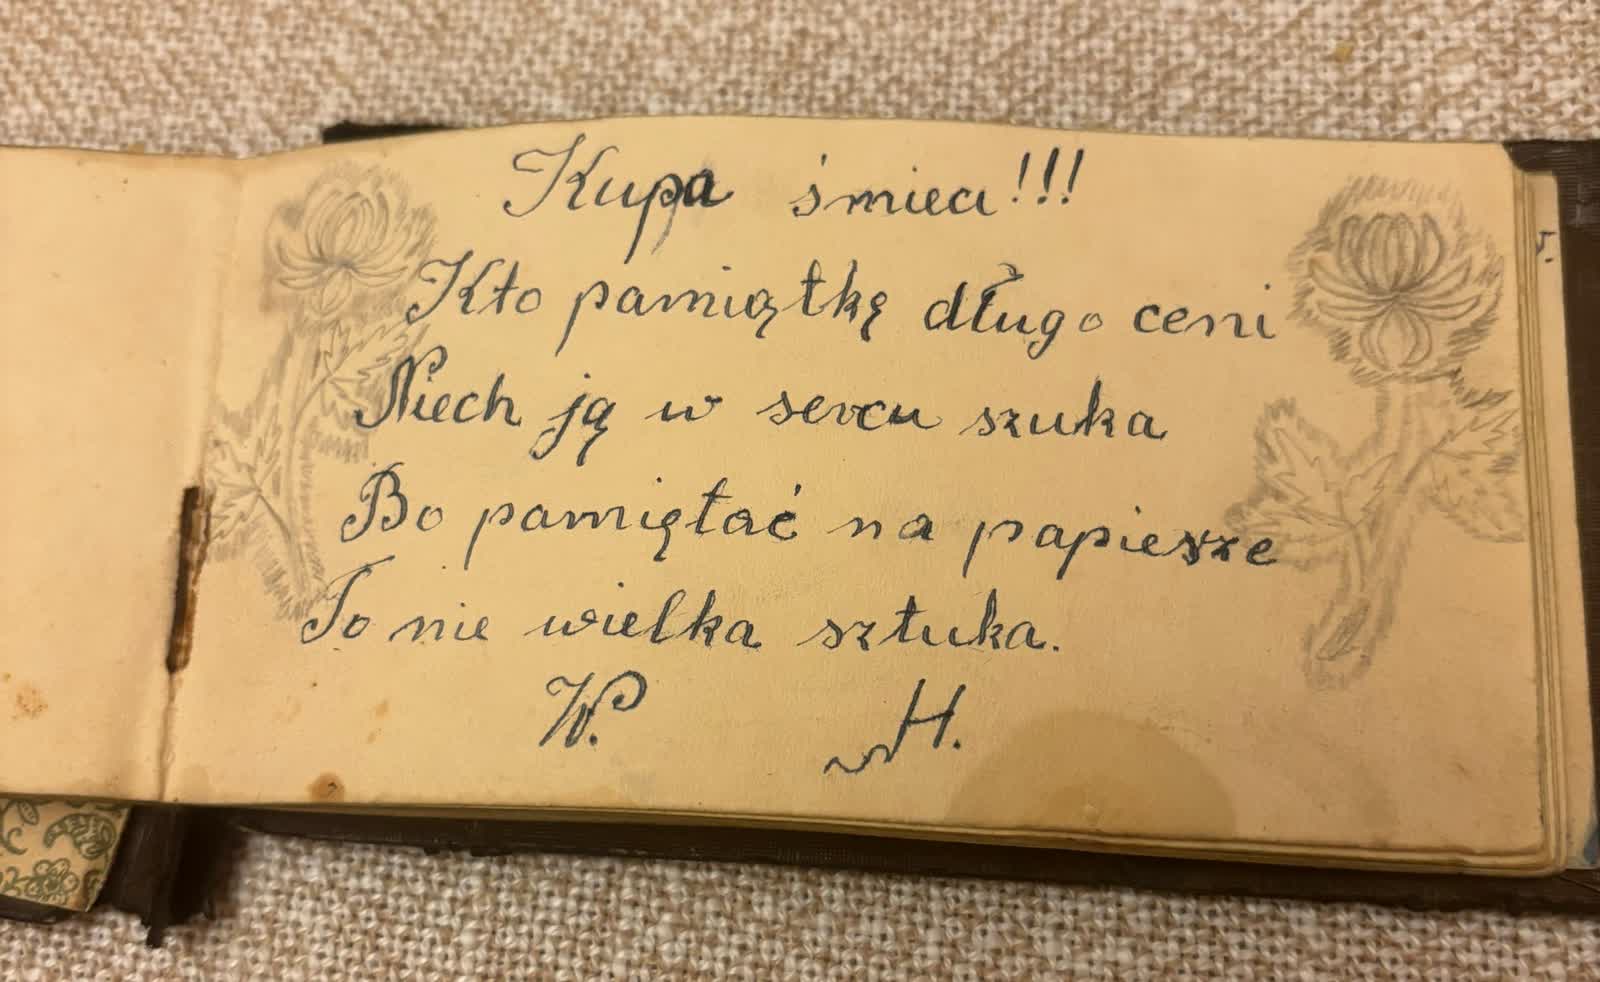 Kupa śmieci!!!
Kto pamiątkę długo ceni
Niech ją w sercu szuka
Bo pamiętać na papierze
To nie wielka sztuka.
W. H.